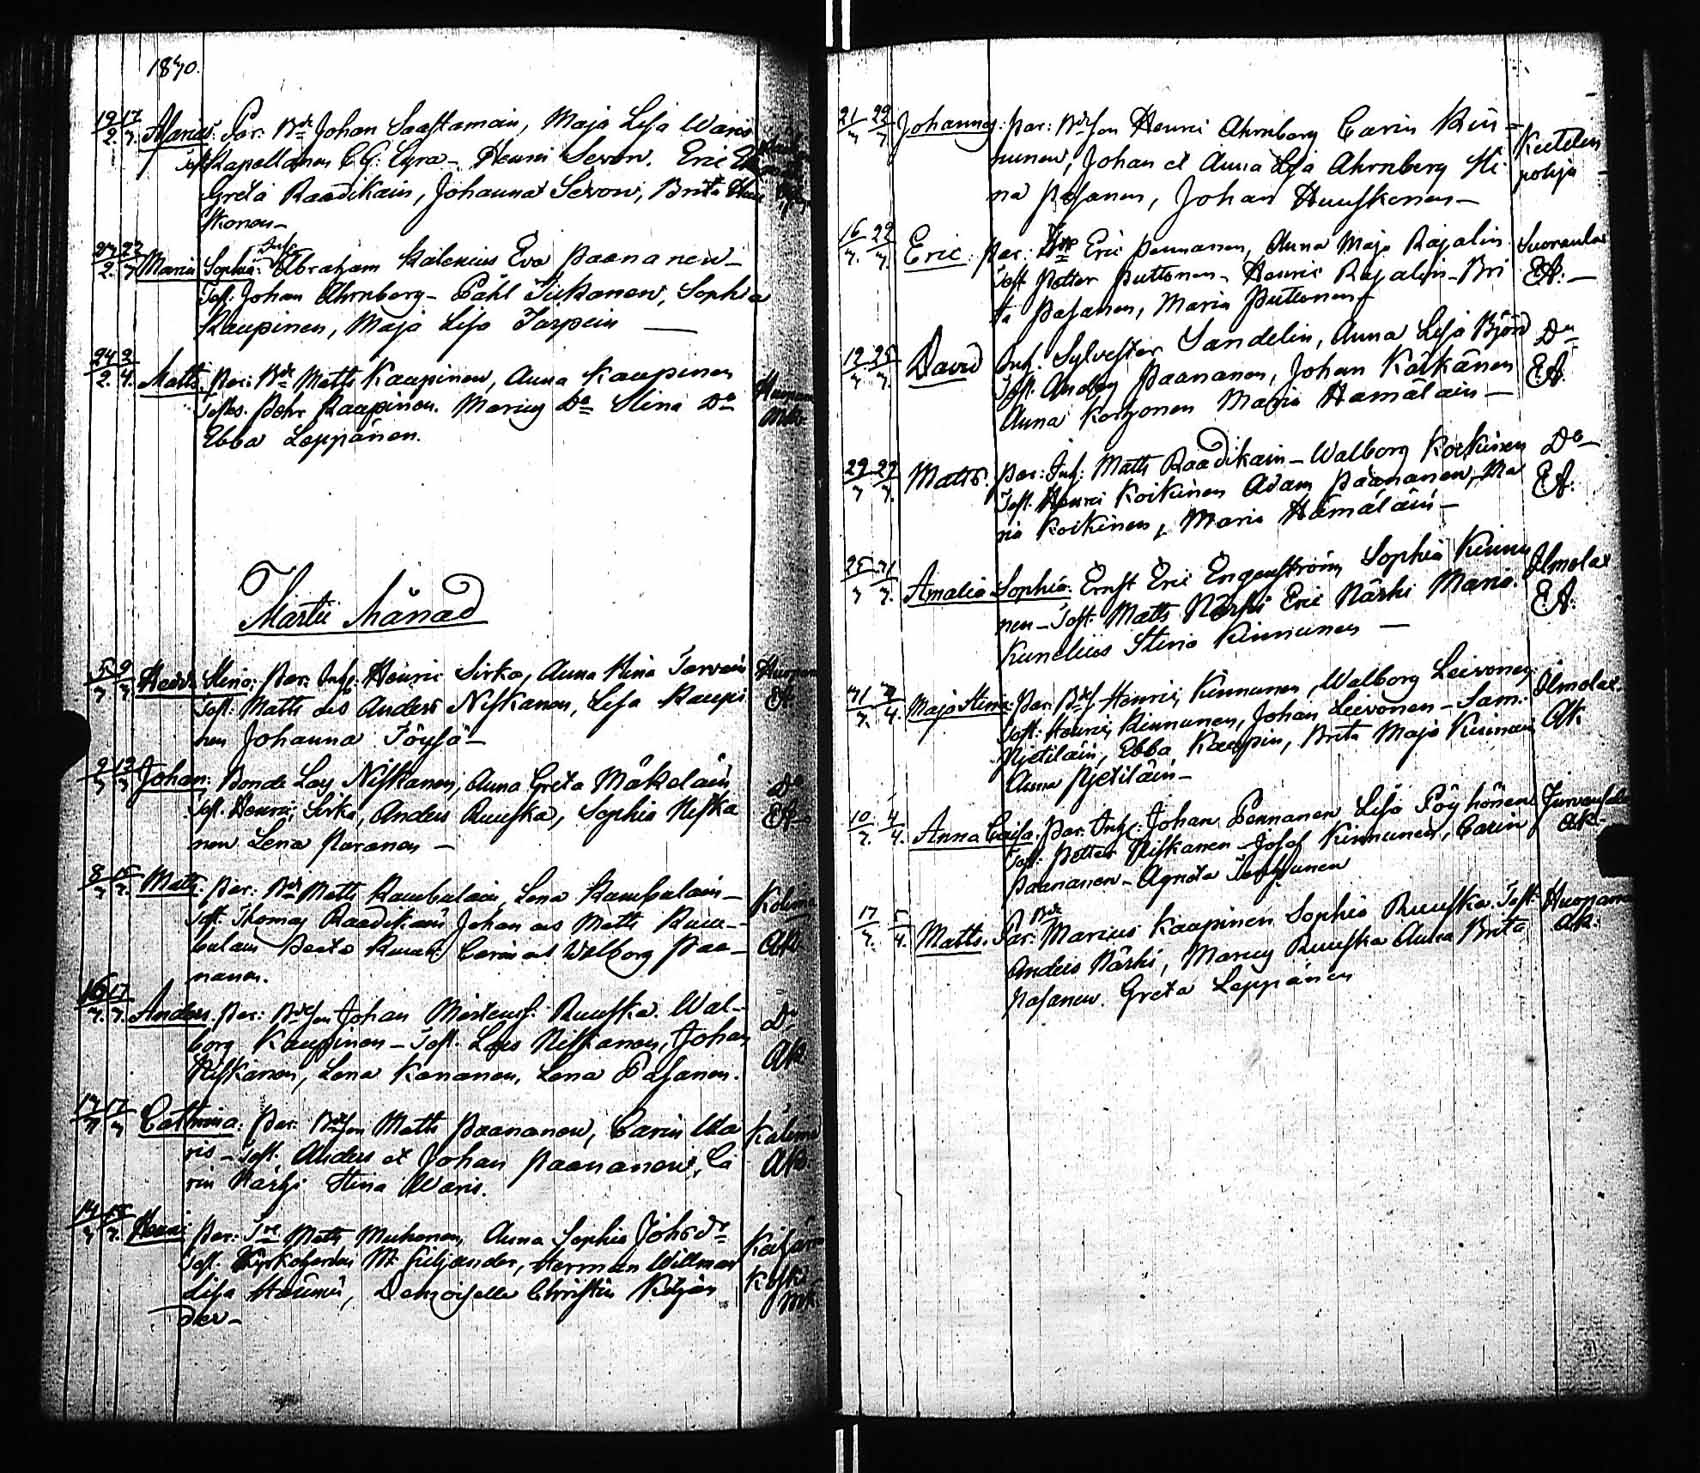 1830.
19/2 17/3 Marius: Par: Bde Johan Saastamoin, Maja Lisa Waris
Test. Kapellanen C. G. Lyra - Henric Sevon. Eric
Greta Raadikain, Johanna Sevon, Brita Huu
skonen -
27/2 22/3 Maria Sophia: Inh: Abraham Kalenius Eva Paananen -
Test. Johan Ahrnberg - Påhl Tickanen, Sophia
Kaupinen, Maja Lisa Tarpein -
24/2 3/4 Matts. Par: Bde Matts Kaupinen, Anna Kaupinen
Testes. Pehr Kaupinen. Marius Do Stina Do
Ebba Leppänen.
Martii Månad
5/3 9/3 Hedda Stina: Par: Inh: Henric Sirka, Anna Stina Tarvain
Test: Matts et Anders Niskanen, Lisa Kaupi
nen Johanna Töysä -
2/3 13/3 Johan: Bonde Lars Niskanen, Anna Greta Mäkeläin Do
Test. Henric Sirka, Anders Ruuska, Sophia Niska
nen Lena Paranen -
8/3 15/3 Matts. Par: Bde Matts Kumbulain, Lena Kumbulain - Kolima
Test. Thomas Raadikain Johan et Matts Kum-
bulain Beata Carin et Walborg Paa-
nanen.
16/3 17/3 Anders. Par: Bdeson Johan Mårtensf: Ruuska. Wal- Do
borg Kaupinen - Test. Lars Niskanen, Johan
Niskanen, Lena Kananen, Lena Pasanen.
17/3 Cathrina: Par: Bdeson Matts Paananen, Carin Wa Kolima
ris - Test. Anders et Johan Paananen, Ca
rin Närhi Stina Waris.
14/3 18/3 Henric Par: Matts Muhonen, Anna Sophia Johsdr
Test. Kyrkoherden M. Kiljander, Herman Willman
Lisa Demoiselle Christin Kiljan
der -
21/3 22/3 Johannes: Par: Bdeson Henric Ahrnberg Carin Kin- Keitelen
nunen, Johan et Anna Lisa Ahrnberg Sti pohja
na Pasanen, Johan Huuskonen -
16/3 22/3 Eric: Par: Eric Pennanen, Anna Maja Rajalin Suovanla
Test Petter Puttonen - Henric Rajalin - Bri
ta Pasanen, Maria Puttonen -
19/3 25/3 David Inh. Sylvester Sandelin, Anna Lisa Björn Do
Test. Anders Paananen, Johan Kälkänen
Anna Korhonen Maria Hämäläin -
22/3 27/3 Matts. Par: Inh: Matts Raadikain - Walborg Koikinen Do
Test. Henric Koikinen Adam Paananen, Ma
ria Koikinen, Maria Hämäläin -
25/3 31/3 Amalia Sophia: Ernst Eric Engenström Sophia Kinnu Ilmolax
nen - Test. Matts Närhi Eric Närhi Maria
Kunelius Stina Kinnunen -
31/3 4. Maja Stina Par: Bdes Henric Kinnunen, Walborg Leivonen Ilmolax
Test. Henric Kinnunen, Johan Leivonen - Sam.
Pietiläin, Ebba Kaupin, Brita Maja Kinnunen
Anna Pietiläin -
10/3 4/4 Anna Caisa. Par. Inh: Johan Pennanen Lisa Pöyhönen
Test: Petter Niskanen - Josef Kinnunen, Carin
Paananen - Agneta Tenhunen
17/3 5/4 Matts. Par: Bde Marius Kaupinen Sophia Ruuska. Test. Huopana
Anders Närhi, Marius Ruuska Anna Brita
Pasanen. Greta Leppänen